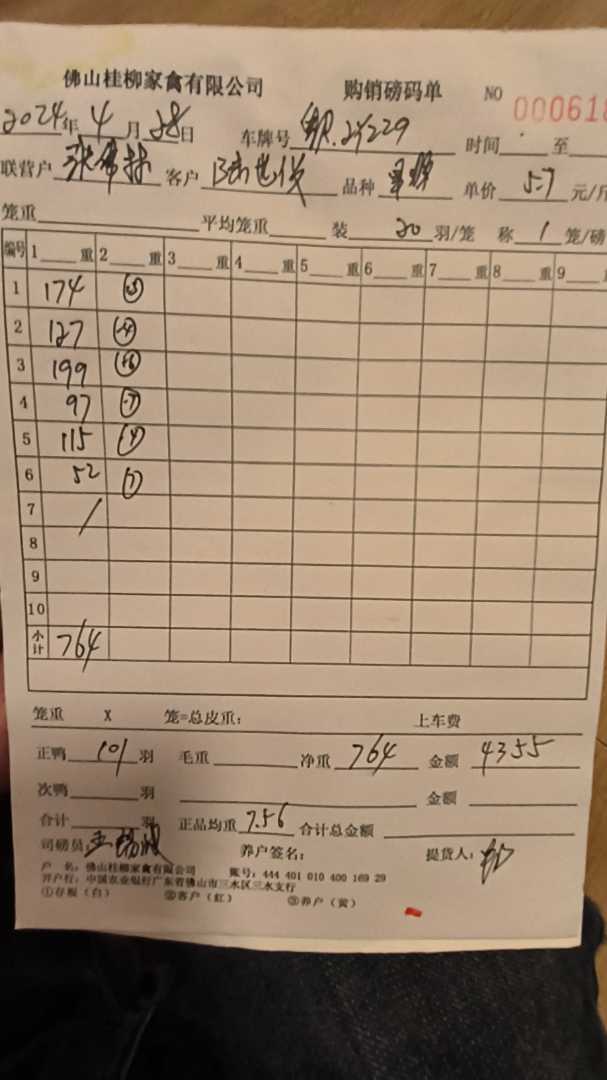 佛山桂柳家禽有限公司 购销磅码单 NO 000618
2024年 4 月 28 日 车牌号 29229 时间 至
联营户 客户 品种 单价 5.7 元/斤
笼重 平均笼重 装 20 羽/笼 称 1 笼/磅
编号 1 重 2 重 3 重 4 重 5 重 6 重 7 重 8 重 9
1 174
2 127
3 199
4 97 -7
5 115
6 52
7 /
8
9
10
小计 764
笼重 X 笼=总皮重: 上车费
正鸭 101 羽 毛重 净重 764 金额 4355
次鸭 羽 金额
合计 羽 正品均重 7.56 合计总金额
司磅员: 养户签名: 提货人:
户 名: 佛山桂柳家禽有限公司 账号: 444 401 010 400 169 29
开户行: 中国农业银行广东省佛山市三水区三水支行
①存根（白） ②客户（红） ③养户（黄）